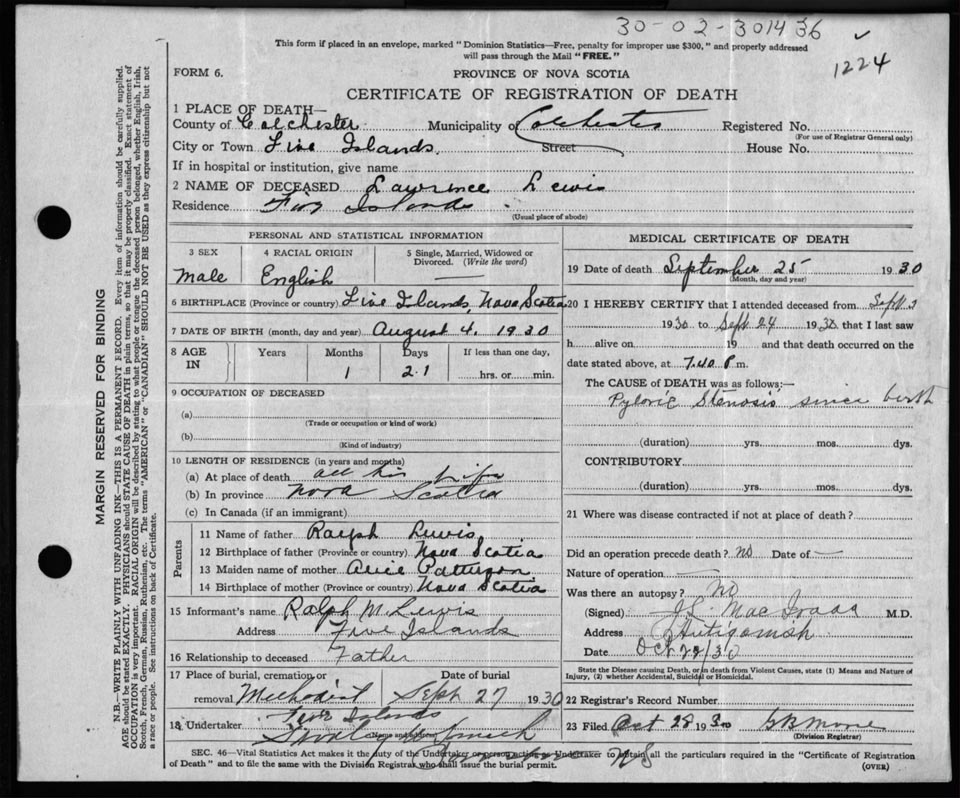 30-02-301436
1224
This form if placed in an envelope, marked "Dominion Statistics—Free, penalty for improper use $300," and properly addressed
will pass through the Mail "FREE."
FORM 6.
PROVINCE OF NOVA SCOTIA
CERTIFICATE OF REGISTRATION OF DEATH
1 PLACE OF DEATH—
County of Colchester Municipality of Colchester Registered No.
(For use of Registrar General only)
City or Town Five Islands. Street House No.
If in hospital or institution, give name
2 NAME OF DECEASED Lawrence Lewis
Residence Five Islands
(Usual place of abode)
PERSONAL AND STATISTICAL INFORMATION
3 SEX 4 RACIAL ORIGIN 5 Single, Married, Widowed or
Divorced. (Write the word)
Male English —
6 BIRTHPLACE (Province or country) Five Islands, Nova Scotia
7 DATE OF BIRTH (month, day and year) August 4. 1930
8 AGE IN Years Months Days If less than one day,
1 21 hrs. or min.
9 OCCUPATION OF DECEASED
(a)
(Trade or occupation or kind of work)
(b)
(Kind of industry)
10 LENGTH OF RESIDENCE (in years and months)
(a) At place of death all his life
(b) In province Nova Scotia
(c) In Canada (if an immigrant)
Parents
11 Name of father Ralph Lewis
12 Birthplace of father (Province or country) Nova Scotia
13 Maiden name of mother Alice Patterson
14 Birthplace of mother (Province or country) Nova Scotia
15 Informant's name Ralph M. Lewis
Address Five Islands
16 Relationship to deceased Father
17 Place of burial, cremation or Date of burial
removal Methodist Sept 27 1930
Five Islands
18 Undertaker
(Name and address)
MEDICAL CERTIFICATE OF DEATH
19 Date of death September 25 1930
(Month, day and year)
20 I HEREBY CERTIFY that I attended deceased from Sept 3
1930 to Sept 24 1930 that I last saw
h alive on 19 and that death occurred on the
date stated above, at 7.40 P m.
The CAUSE OF DEATH was as follows;—
Pyloric Stenosis since birth
(duration) yrs. mos. dys.
CONTRIBUTORY
(duration) yrs. mos. dys.
21 Where was disease contracted if not at place of death?
Did an operation precede death? No Date of —
Nature of operation —
Was there an autopsy? No
(Signed) J.L. MacIsaac M.D.
Address Antigonish
Date Oct 27/30
State the Disease causing Death, or in death from Violent Causes, state (1) Means and Nature of
Injury, (2) whether Accidental, Suicidal or Homicidal.
22 Registrar's Record Number
23 Filed Oct 28 1930
(Division Registrar)
SEC. 46—Vital Statistics Act makes it the duty of the Undertaker or person acting as Undertaker to obtain all the particulars required in the "Certificate of Registration
of Death" and to file the same with the Division Registrar who shall issue the burial permit. N S
(OVER)
MARGIN RESERVED FOR BINDING
N.B.—WRITE PLAINLY WITH UNFADING INK—THIS IS A PERMANENT RECORD. Every item of information should be carefully supplied.
AGE should be stated EXACTLY. PHYSICIANS should STATE CAUSE OF DEATH in plain terms, so that it may be properly classified. Exact statement of
OCCUPATION is very important. RACIAL ORIGIN will be described by stating to what people or tongue the deceased person belonged, whether English, Irish,
Scotch, French, German, Russian, Ruthenian, etc. The terms "AMERICAN" or "CANADIAN" SHOULD NOT BE USED as they express citizenship but not
a race or people. See instructions on back of Certificate.